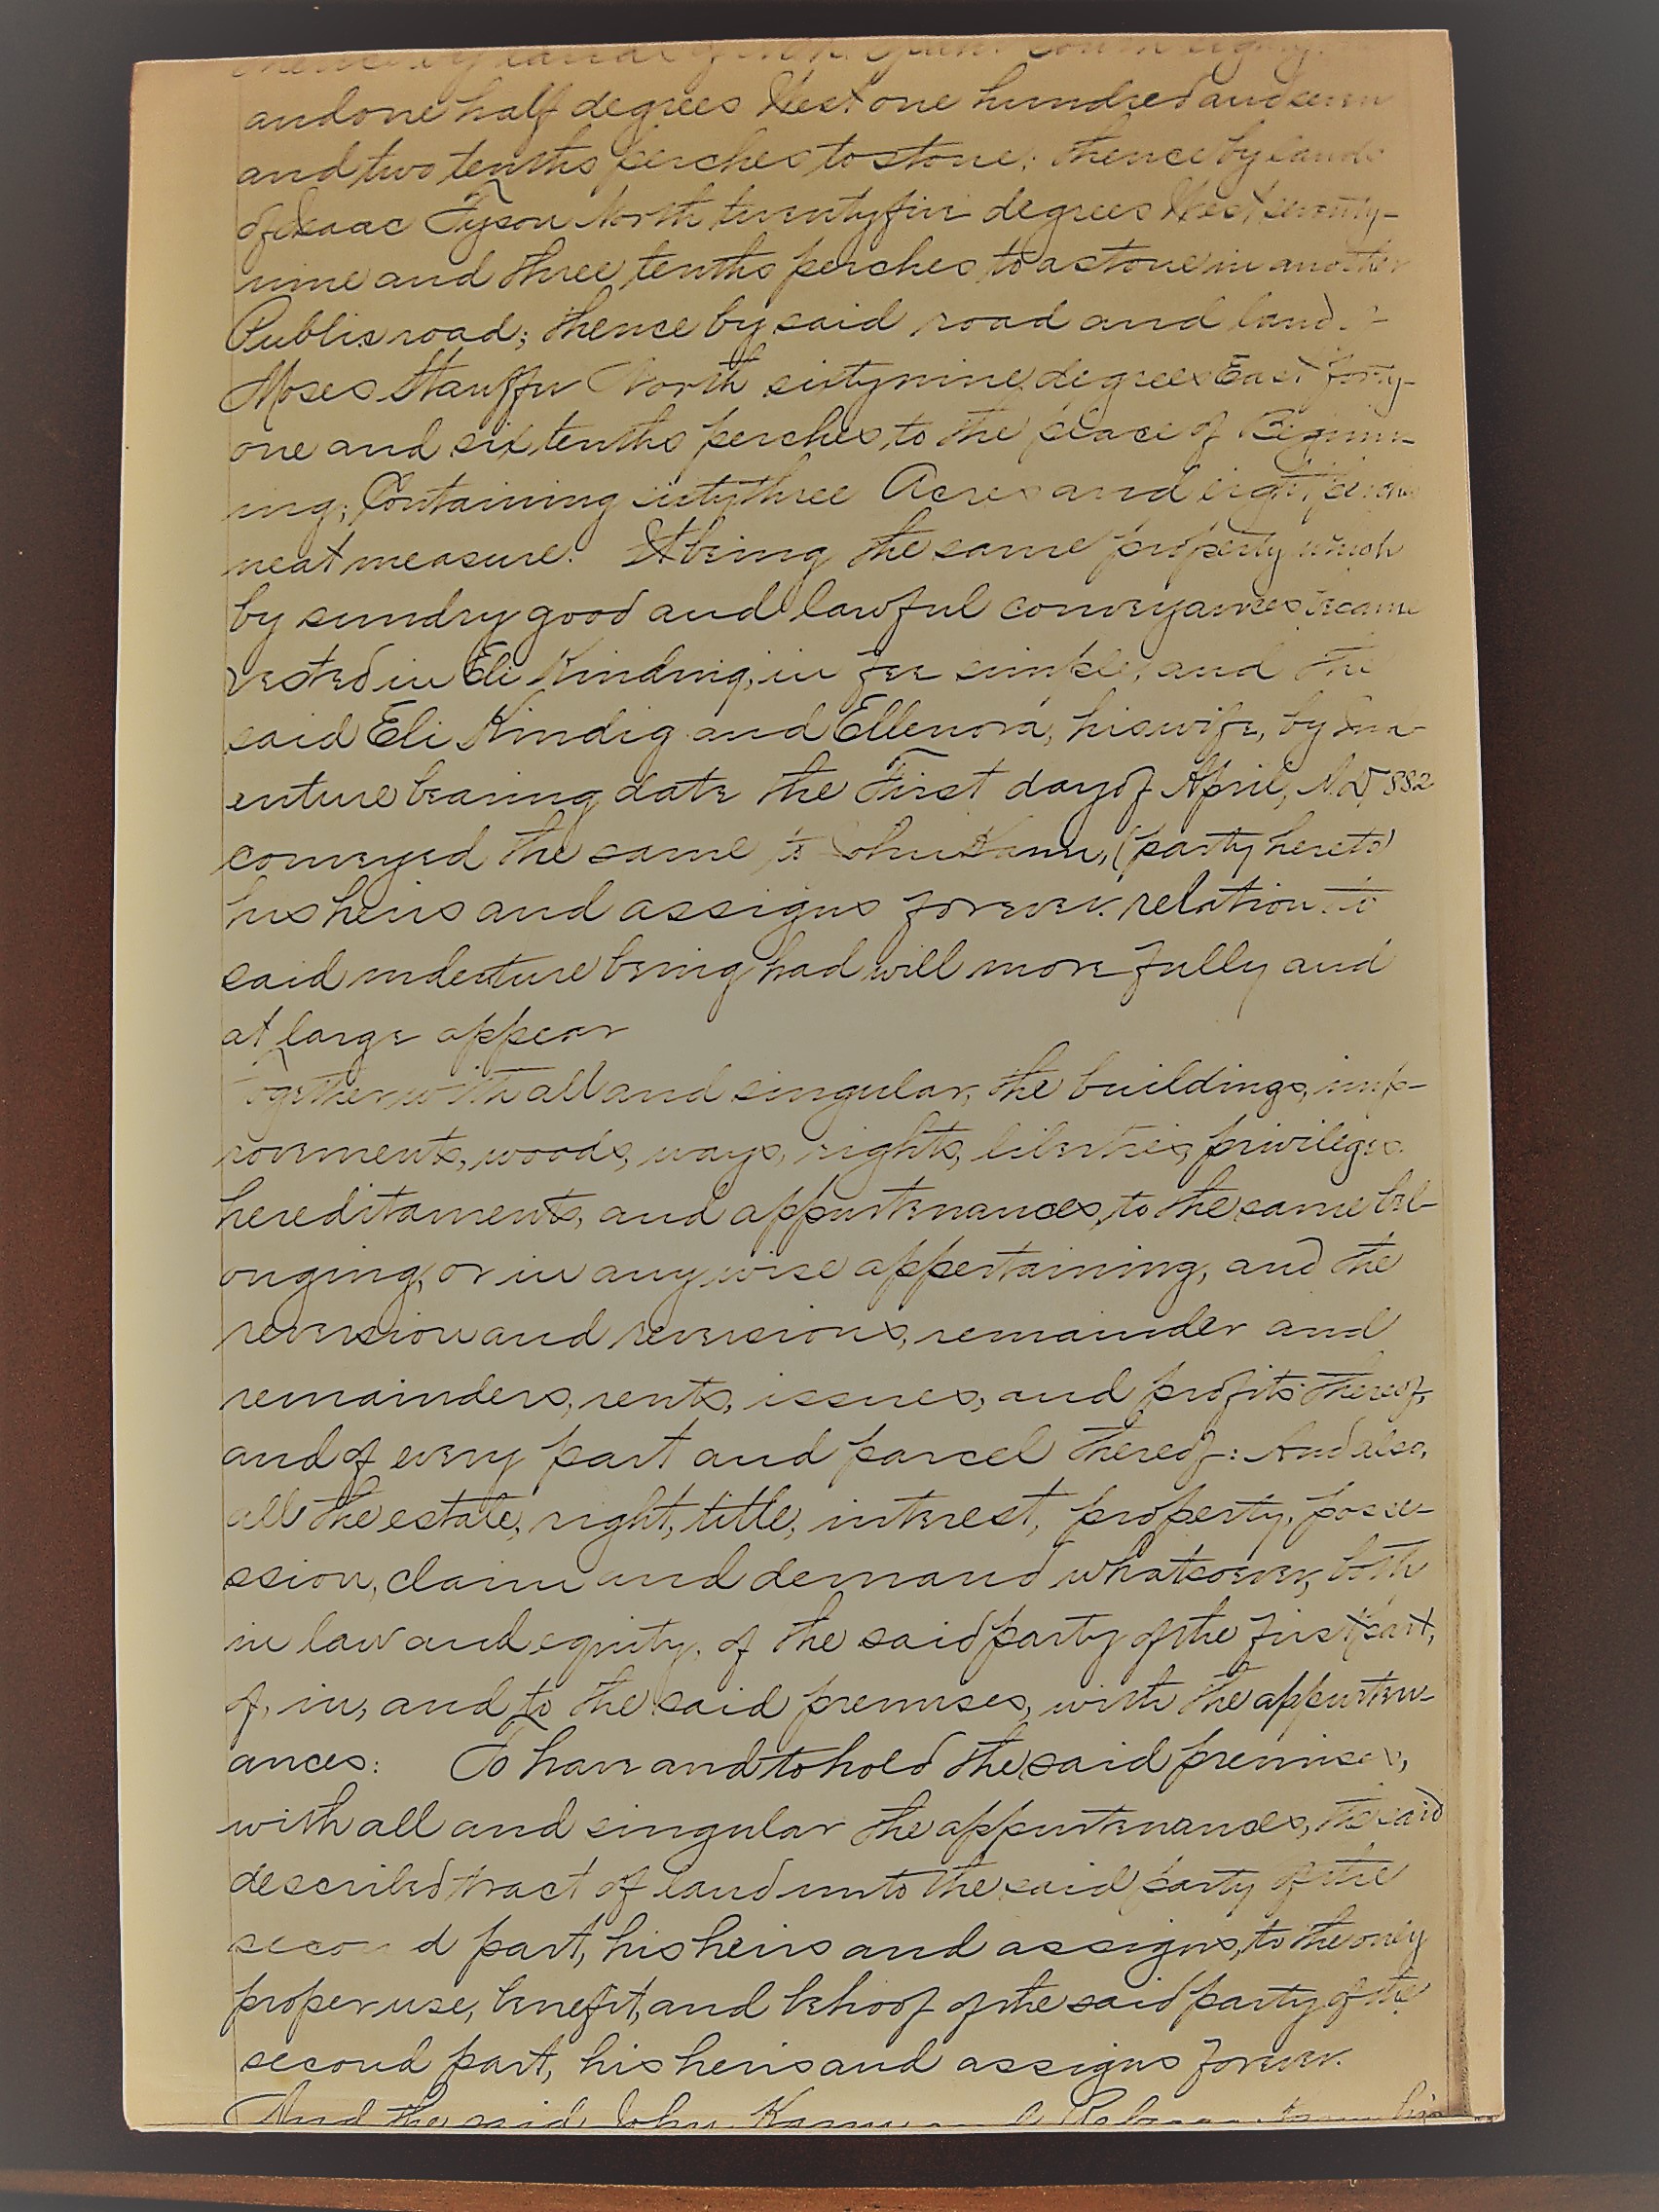 and one half degrees West one hundred and seven
and two tenths perches to stone; thence by lands
of Isaac Tyson North twenty five degrees West seventy-
nine and three tenths perches to a stone in another
Public road; thence by said road and land of
Moses Stauffer North sixty nine degrees East forty-
one and six tenths perches, to the place of Beginn-
ing; Containing sixty three Acres and eight perches
neat measure. It being the same property which
by sundry good and lawful conveyances became
vested in Eli Kindig, in fee simple, and the
said Eli Kindig and Ellenora, his wife, by Ind-
enture bearing date the First day of April, A.D. 1882
conveyed the same to John Kann, (party hereto)
his heirs and assigns forever. relation to
said indenture being had will more fully and
at large appear
Together with all and singular, the buildings, imp-
rovements, woods, ways, rights, liberties, privileges
hereditaments, and appurtenances, to the same bel-
onging, or in any wise appertaining, and the
reversion and reversions, remainder and
remainders, rents, issues, and profits thereof,
and of every part and parcel thereof: And also,
all the estate, right, title, interest, property, posse-
ssion, claim and demand whatsoever, both
in law and equity, of the said party of the first part,
of, in, and to the said premises, with the appurten-
ances: To have and to hold the said premises,
with all and singular the appurtenances, the said
described tract of land unto the said party of the
second part, his heirs and assigns, to the only
proper use, benefit, and behoof of the said party of the
second part, his heirs and assigns forever.
And the said John Kann his